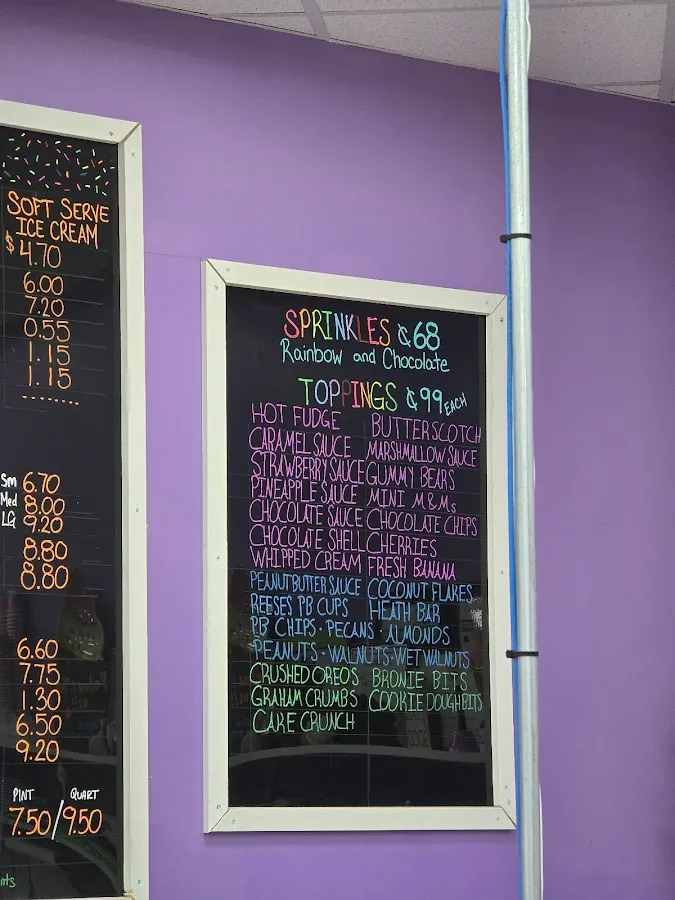 SOFT SERVE
ICE CREAM
$4.70
6.00
7.20
0.55
1.15
1.15
Sm 6.70
Med 8.00
LG 9.20
8.80
8.80
6.60
7.75
1.30
6.50
9.20
PINT QUART
7.50/9.50
nts
SPRINKLES ¢68
Rainbow and Chocolate
TOPPINGS ¢99 EACH
HOT FUDGE BUTTERSCOTCH
CARAMEL SAUCE MARSHMALLOW SAUCE
STRAWBERRY SAUCE GUMMY BEARS
PINEAPPLE SAUCE MINI M&Ms
CHOCOLATE SAUCE CHOCOLATE CHIPS
CHOCOLATE SHELL CHERRIES
WHIPPED CREAM FRESH BANANA
PEANUTBUTTER SAUCE COCONUT FLAKES
REESES PB CUPS HEATH BAR
PB CHIPS · PECANS · ALMONDS
PEANUTS - WALNUTS - WET WALNUTS
CRUSHED OREOS BRONIE BITS
GRAHAM CRUMBS COOKIE DOUGH BITS
CAKE CRUNCH